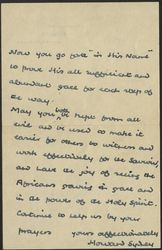 Now you go forth "in His Name"
to prove His all sufficient and
abundant grace for each step of
the way.
May you both be kept from all
evil and be used to make it
easier for others to witness and
work effectively for the Saviour,
and have the joy of seeing the
Africans growing in grace and
in the power of the Holy Spirit.
Continue to help us by your
prayers yours affectionately
Howard